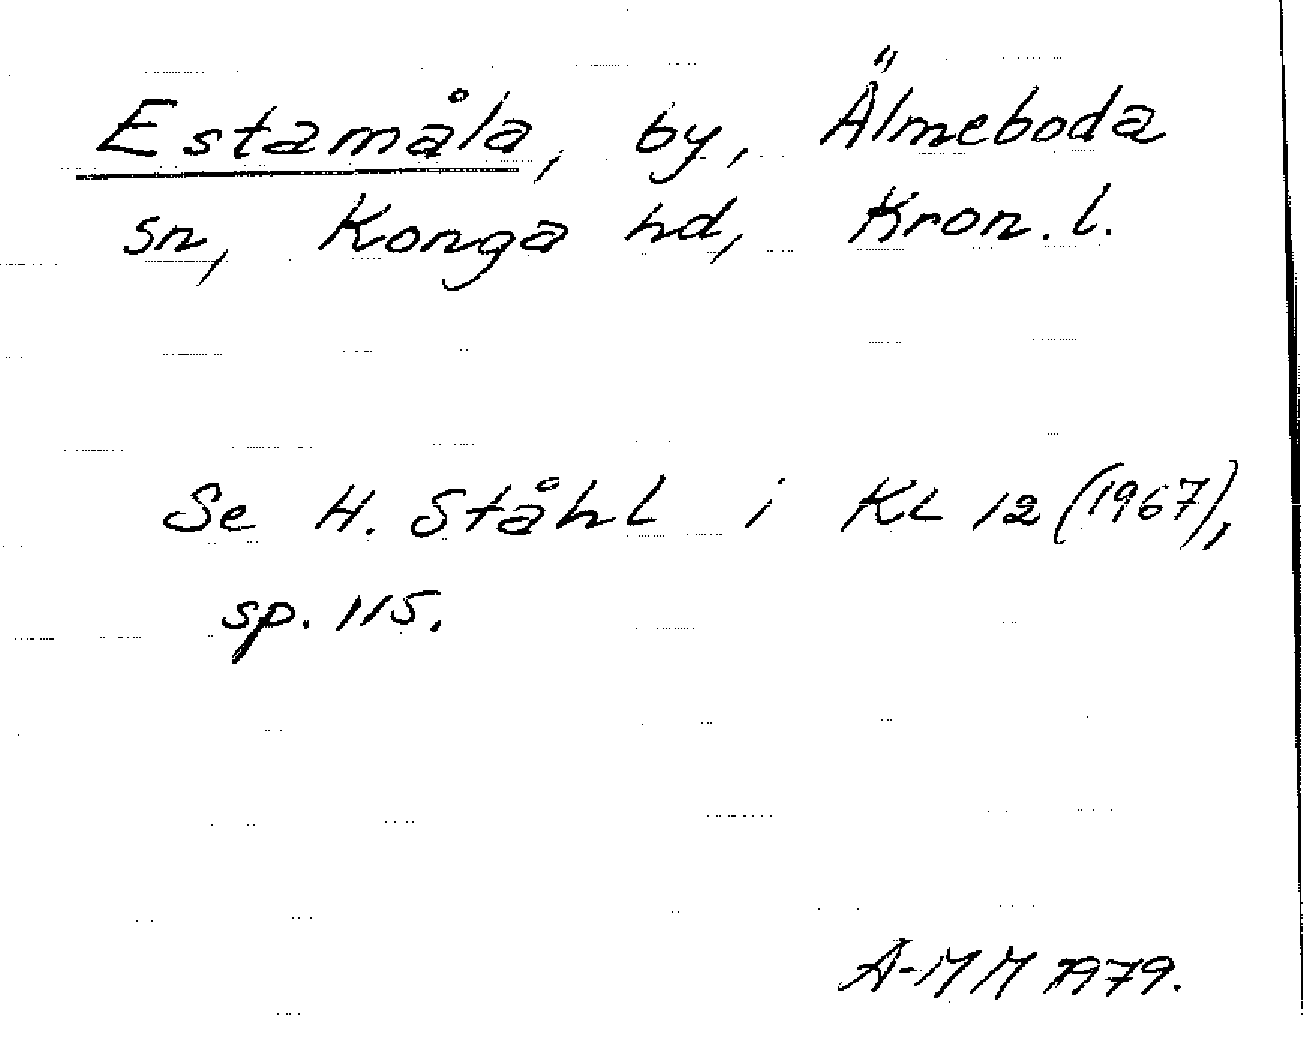 Estamåla, by, Älmeboda
sn, Konga hd, Kron. l.
Se H. Ståhl i KL 12 (1967),
sp. 115.
A-MM 1979.